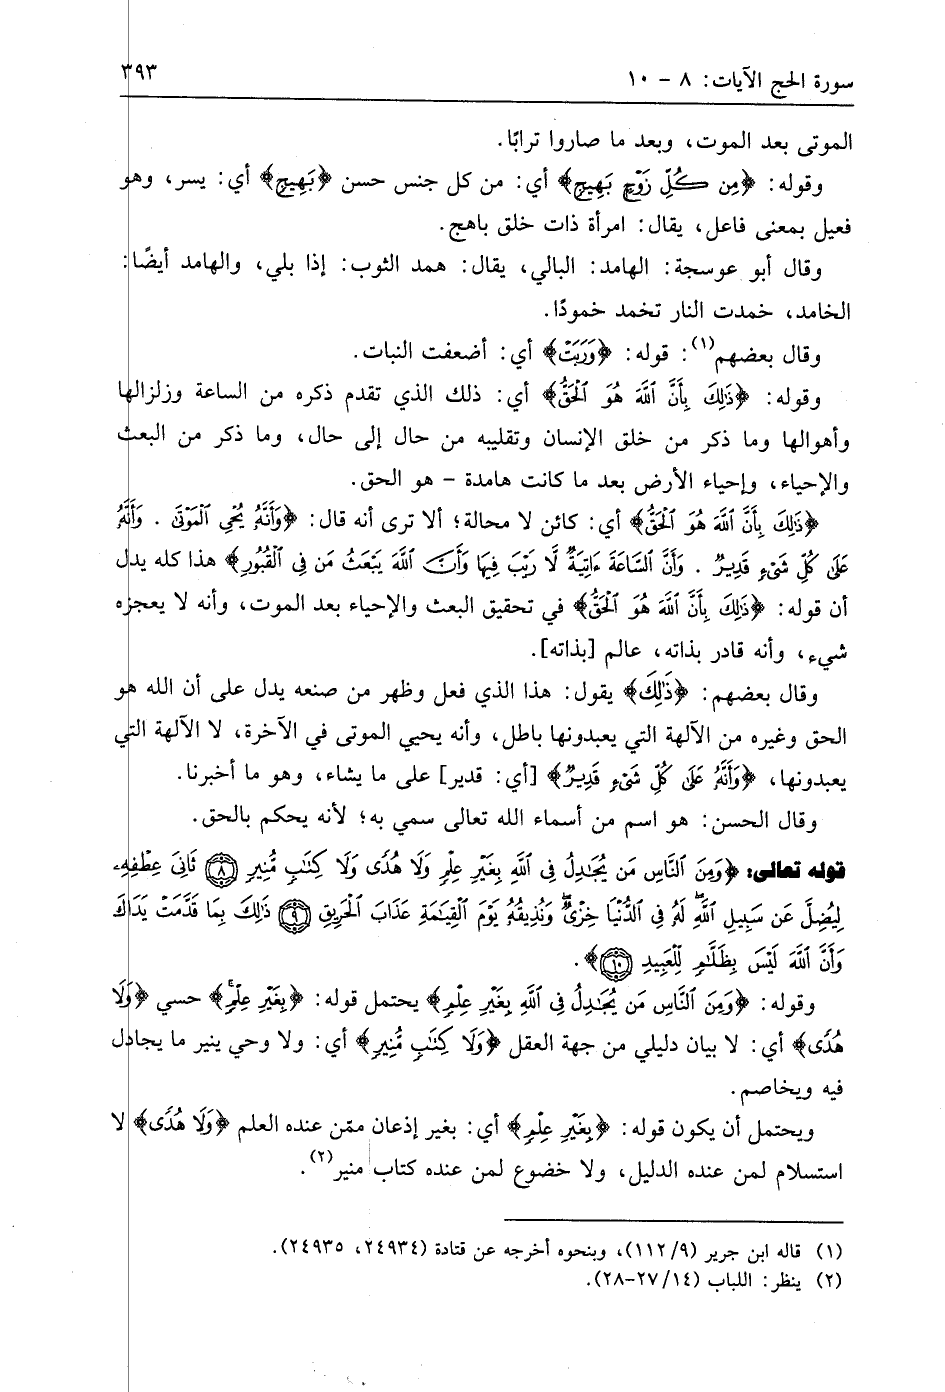 سورة الحج الآيات: ٨ - ١٠
٣٩٣
الموتى بعد الموت، وبعد ما صاروا ترابًا.
وقوله: ﴿مِن كُلِّ زَوْجٍ بَهِيجٍ﴾ أي: من كل جنس حسن ﴿بَهِيجٍ﴾ أي: يسر، وهو
فعيل بمعنى فاعل، يقال: امرأة ذات خلق باهج.
وقال أبو عوسجة: الهامد: البالي، يقال: همد الثوب: إذا بلي، والهامد أيضًا:
الخامد، خمدت النار تخمد خمودًا.
وقال بعضهم(١): قوله: ﴿وَرَبَتْ﴾ أي: أضعفت النبات.
وقوله: ﴿ذَٰلِكَ بِأَنَّ ٱللَّهَ هُوَ ٱلْحَقُّ﴾ أي: ذلك الذي تقدم ذكره من الساعة وزلزالها
وأهوالها وما ذكر من خلق الإنسان وتقليبه من حال إلى حال، وما ذكر من البعث
والإحياء، وإحياء الأرض بعد ما كانت هامدة - هو الحق.
﴿ذَٰلِكَ بِأَنَّ ٱللَّهَ هُوَ ٱلْحَقُّ﴾ أي: كائن لا محالة؛ ألا ترى أنه قال: ﴿وَأَنَّهُۥ يُحْىِ ٱلْمَوْتَىٰ . وَأَنَّهُۥ
عَلَىٰ كُلِّ شَىْءٍ قَدِيرٌ . وَأَنَّ ٱلسَّاعَةَ ءَاتِيَةٌ لَّا رَيْبَ فِيهَا وَأَنَّ ٱللَّهَ يَبْعَثُ مَن فِى ٱلْقُبُورِ﴾ هذا كله يدل
أن قوله: ﴿ذَٰلِكَ بِأَنَّ ٱللَّهَ هُوَ ٱلْحَقُّ﴾ في تحقيق البعث والإحياء بعد الموت، وأنه لا يعجزه
شيء، وأنه قادر بذاته، عالم [بذاته].
وقال بعضهم: ﴿ذَٰلِكَ﴾ يقول: هذا الذي فعل وظهر من صنعه يدل على أن الله هو
الحق وغيره من الآلهة التي يعبدونها باطل، وأنه يحيي الموتى في الآخرة، لا الآلهة التي
يعبدونها، ﴿وَأَنَّهُۥ عَلَىٰ كُلِّ شَىْءٍ قَدِيرٌ﴾ [أي: قدير] على ما يشاء، وهو ما أخبرنا.
وقال الحسن: هو اسم من أسماء الله تعالى سمي به؛ لأنه يحكم بالحق.
قوله تعالى: ﴿وَمِنَ ٱلنَّاسِ مَن يُجَٰدِلُ فِى ٱللَّهِ بِغَيْرِ عِلْمٍ وَلَا هُدًى وَلَا كِتَٰبٍ مُّنِيرٍ ۝٨ ثَانِىَ عِطْفِهِۦ
لِيُضِلَّ عَن سَبِيلِ ٱللَّهِ ۖ لَهُۥ فِى ٱلدُّنْيَا خِزْىٌ ۖ وَنُذِيقُهُۥ يَوْمَ ٱلْقِيَٰمَةِ عَذَابَ ٱلْحَرِيقِ ۝٩ ذَٰلِكَ بِمَا قَدَّمَتْ يَدَاكَ
وَأَنَّ ٱللَّهَ لَيْسَ بِظَلَّٰمٍ لِّلْعَبِيدِ ۝١٠﴾.
وقوله: ﴿وَمِنَ ٱلنَّاسِ مَن يُجَٰدِلُ فِى ٱللَّهِ بِغَيْرِ عِلْمٍ﴾ يحتمل قوله: ﴿بِغَيْرِ عِلْمٍ﴾ حسي ﴿وَلَا
هُدًى﴾ أي: لا بيان دليلي من جهة العقل ﴿وَلَا كِتَٰبٍ مُّنِيرٍ﴾ أي: ولا وحي ينير ما يجادل
فيه ويخاصم.
ويحتمل أن يكون قوله: ﴿بِغَيْرِ عِلْمٍ﴾ أي: بغير إذعان ممّن عنده العلم ﴿وَلَا هُدًى﴾ لا
استسلام لمن عنده الدليل، ولا خضوع لمن عنده كتاب منير(٢).
(١) قاله ابن جرير (٩/ ١١٢)، وبنحوه أخرجه عن قتادة (٢٤٩٣٤، ٢٤٩٣٥).
(٢) ينظر: اللباب (١٤/ ٢٧-٢٨).